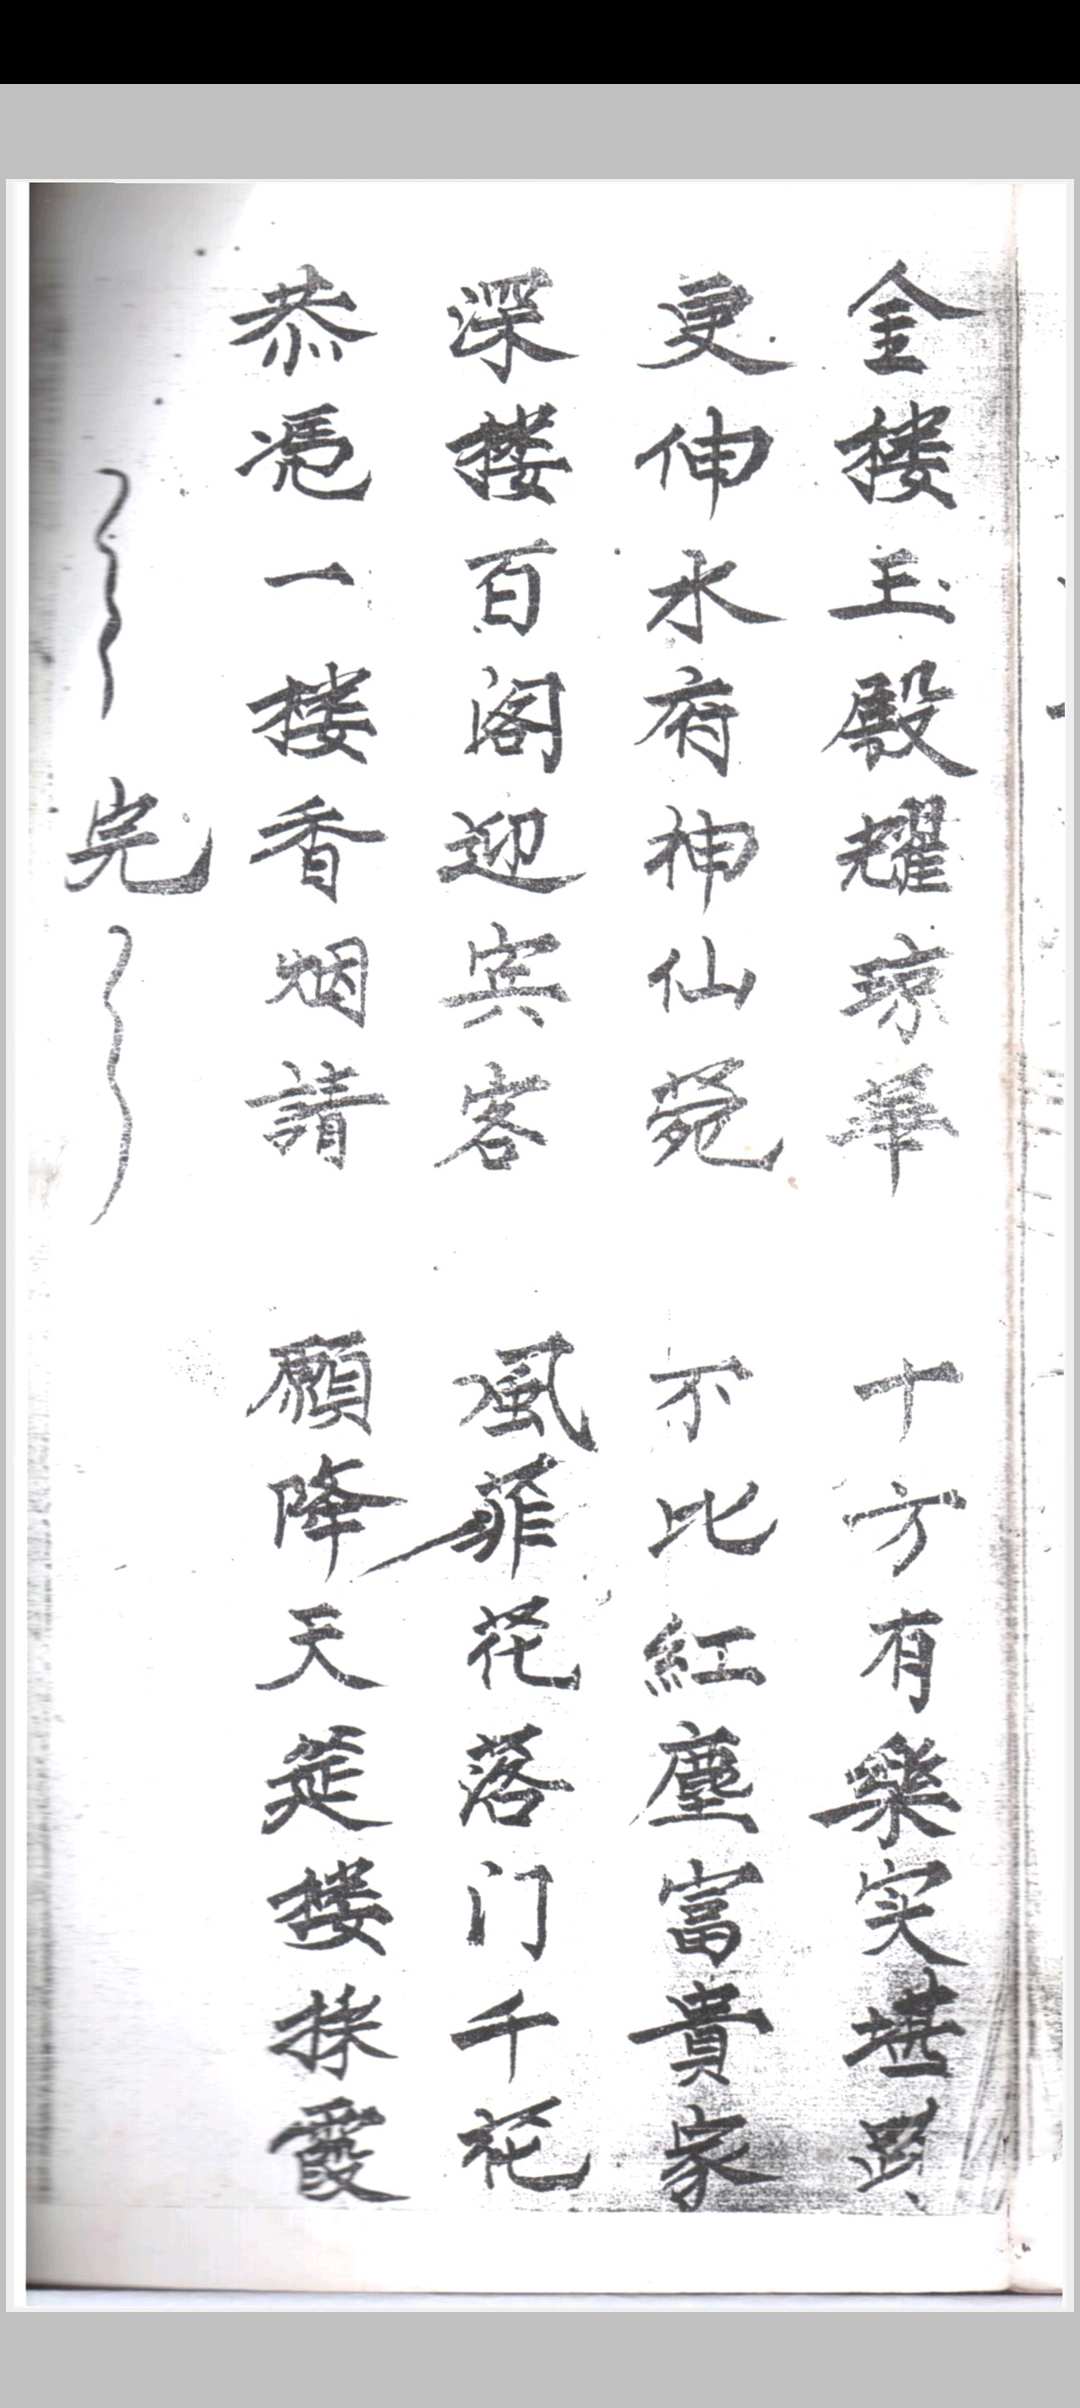 金楼玉殿耀琼華　十方有樂实堪跨
更伸水府神仙苑　不比紅塵富貴家
深楼百阁迎宾客　風菲花落门千花
恭凴一楼香烟請　願降天筵楼採霞
完